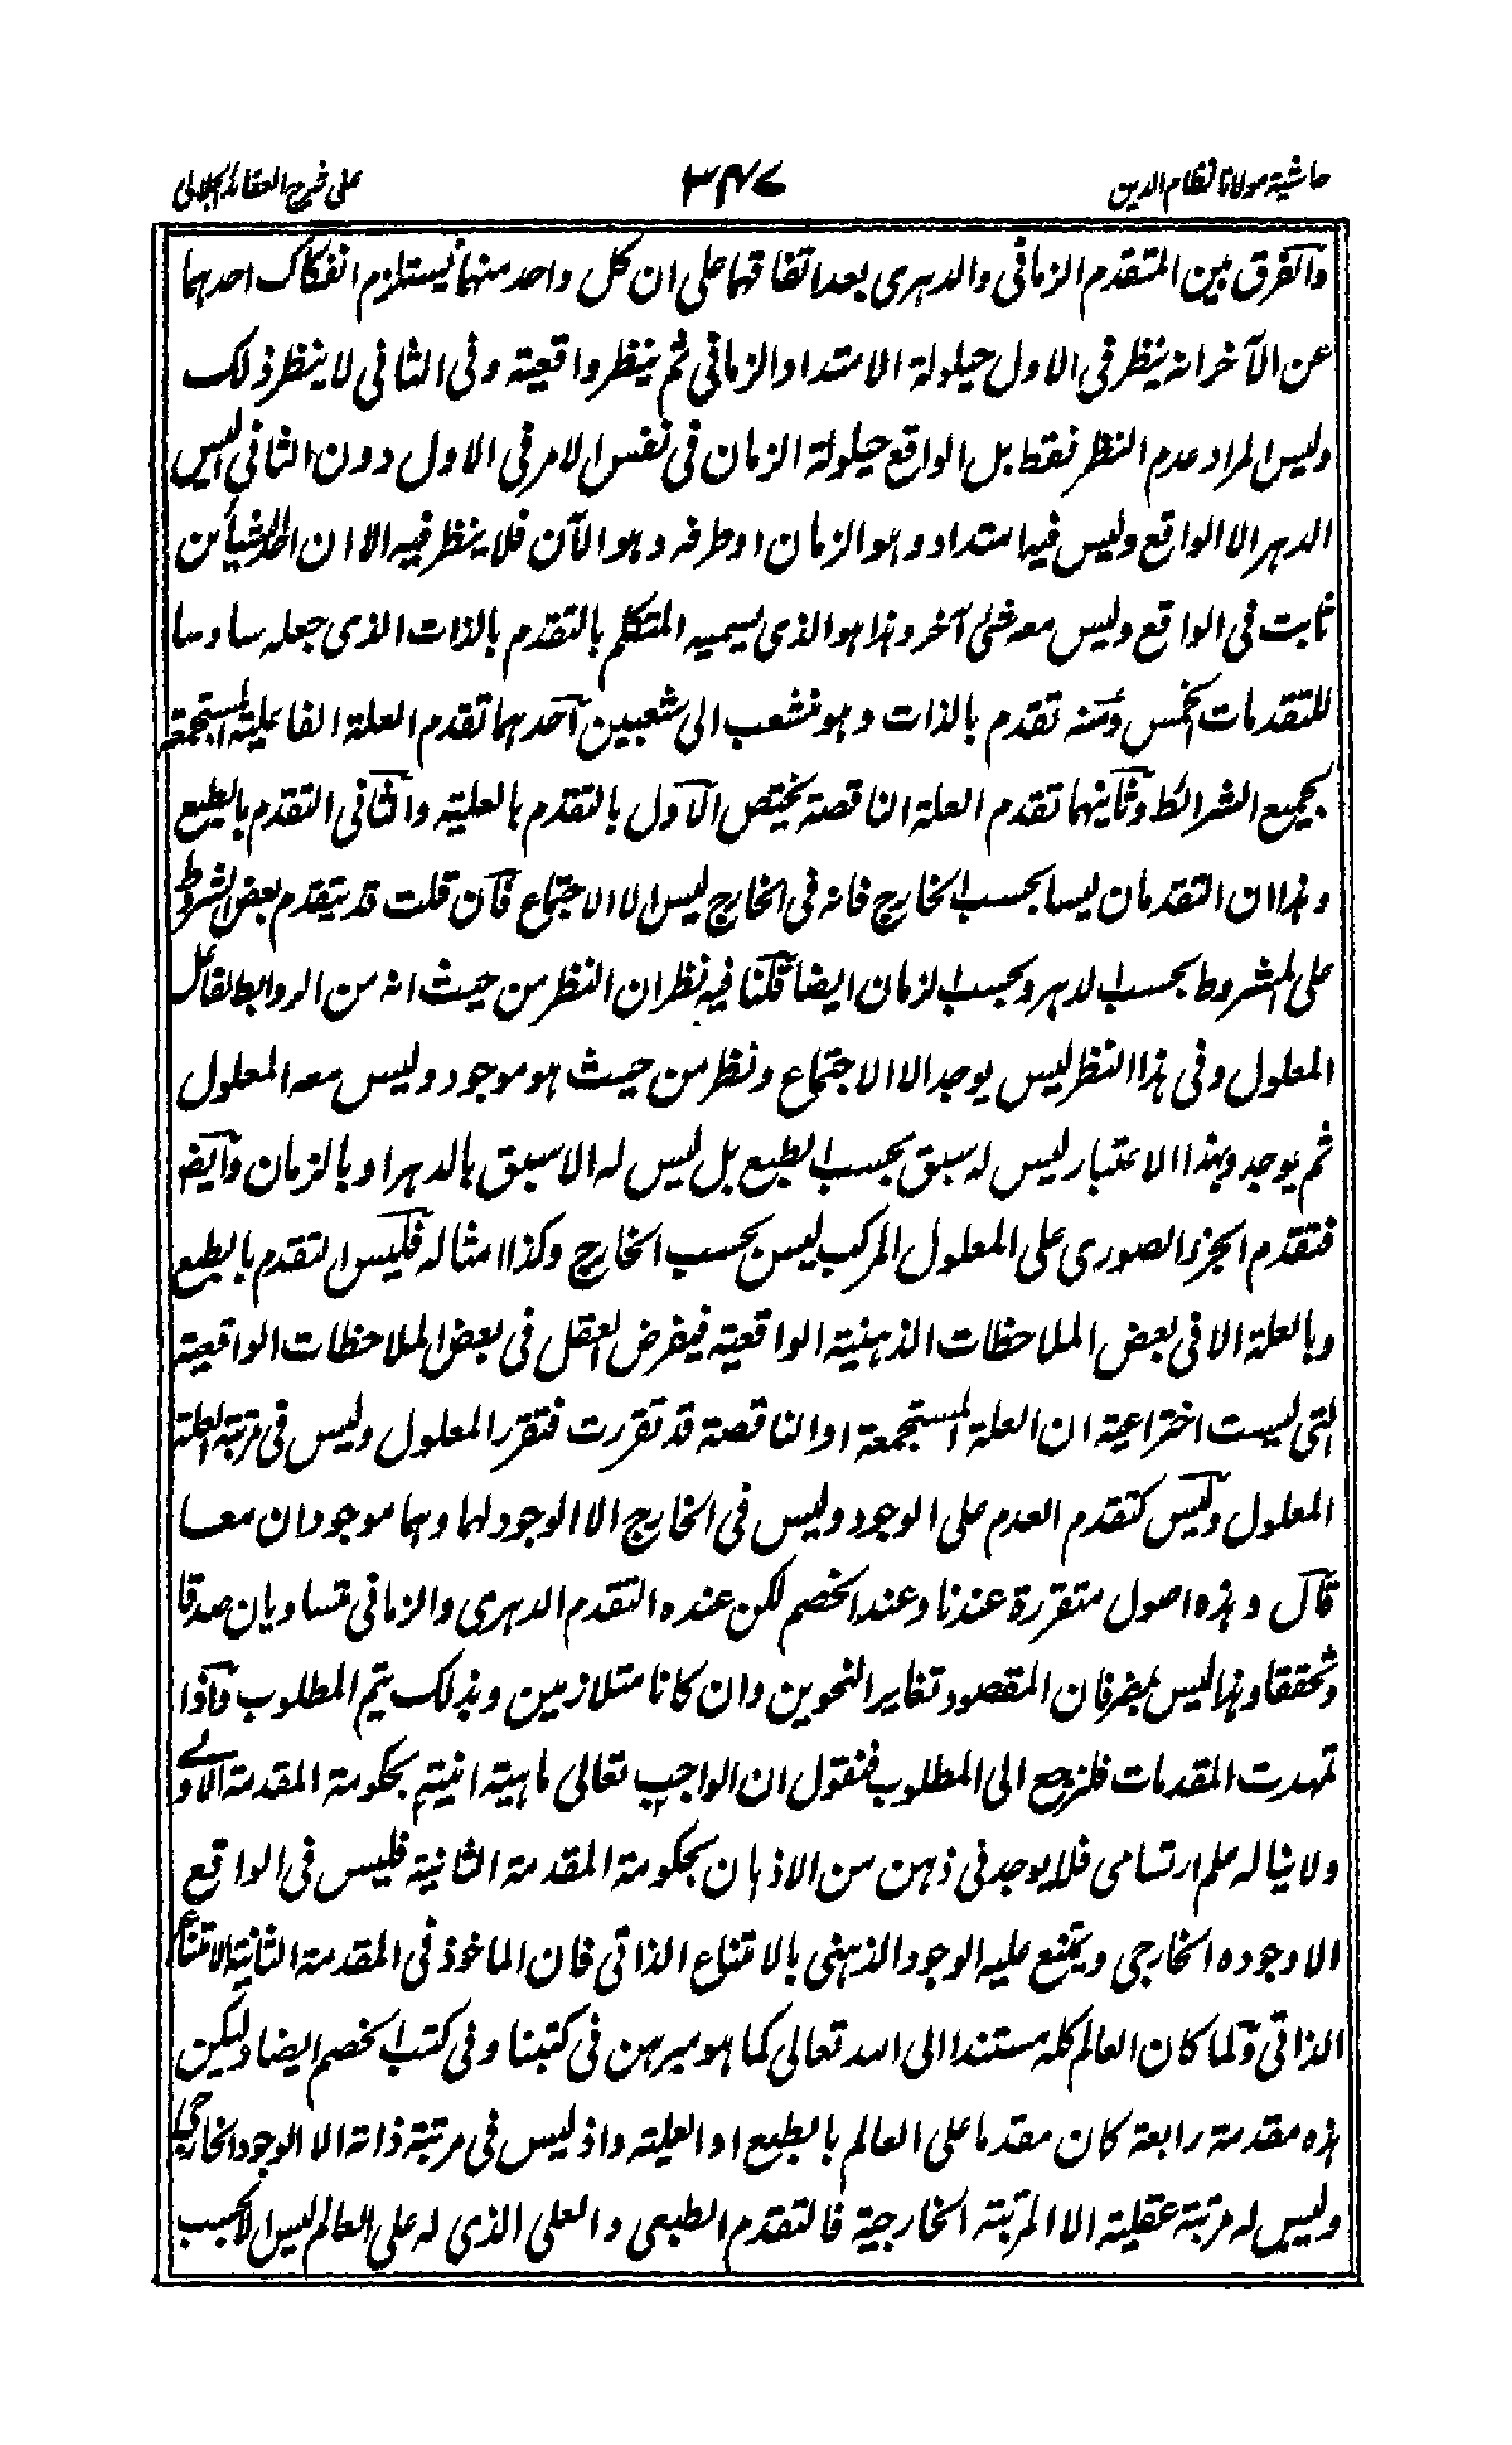 حاشية مولانا نظام الدين
٣٤٧
على شرح العقائد الجلالى
والفرق بين المتقدم الزمانى والدهرى بعد اتفاقهما على ان كل واحد منهما يستلزم انفكاك احدهما
عن الآخر انه ينظر فى الاول حيلولة الامتداد الزمانى ثم ينظر واقعية وفى الثانى لا ينظر ذلك
وليس المراد عدم النظر فقط بل الواقع حيلولة الزمان فى نفس الامر فى الاول دون الثانى اليس
الدهر الا الواقع وليس فيها امتداد وهو الزمان او طرفه وهو الآن فلا ينظر فيه الا ان احد الشيأين
ثابت فى الواقع وليس معه شئ آخر وهذا هو الذى يسميه المتكلم بالتقدم بالذات الذى جعله سادسا
للتقدمات الخمس ومنه تقدم بالذات وهو منشعب الى شعبين احدهما تقدم العلة الفاعلية المستجمعة
بجميع الشرائط وثانيهما تقدم العلة الناقصة يختص الاول بالتقدم بالعلية والثانى التقدم بالطبع
وهذا ان التقدمان ليسا بحسب الخارج فانه فى الخارج ليس الا الاجتماع فان قلت قد يتقدم بعض الشروط
على المشروط بحسب الدهر وبحسب الزمان ايضا قلنا فيه نظران النظر من حيث انه من الروابط لقائل
المعلول وفى هذا النظر ليس يوجد الا الاجتماع ونظر من حيث هو موجود وليس معه المعلول
ثم يوجد وبهذا الاعتبار ليس له سبق بحسب الطبع بل ليس له الا سبق بالدهر او بالزمان وايضا
فتقدم الجزء الصورى على المعلول المركب ليس بحسب الخارج وكذا امثاله فليس التقدم بالطبع
وبالعلة الا فى بعض الملاحظات الذهنية الواقعية فيفرض العقل فى بعض الملاحظات الواقعية
التى ليست اختراعية ان العلة المستجمعة او الناقصة قد تقررت فتقرر المعلول وليس فى مرتبة العلة
المعلول وليس كتقدم العدم على الوجود وليس فى الخارج الا الوجود لهما وهما موجودان معا
قال وهذه اصول متقررة عندنا وعند الخصم لكن عنده التقدم الدهرى والزمانى متساويان صدقا
وتحققا وهذا ليس بمضر فان المقصود تغاير النحوين وان كانا متلازمين وبذلك يتم المطلوب واذا
تمهدت المقدمات فلنرجع الى المطلوب فنقول ان الواجب تعالى ماهيته انيته بحكومة المقدمة الاولى
ولا يناله علم ارتسامى فلا يوجد فى ذهن من الاذهان بحكومة المقدمة الثانية فليس فى الواقع
الا وجوده الخارجى ويمتنع عليه الوجود الذهنى بالامتناع الذاتى فان الماخوذ فى المقدمة الثانية الامتناع
الذاتى ولما كان العالم كله مستندا الى الله تعالى كما هو مبرهن فى كتبنا وفى كتب الخصم ايضا وليكن
هذه مقدمة رابعة كان مقدما على العالم بالطبع او العلية واذ ليس فى مرتبة ذاته الا الوجود الخارجى
وليس له مرتبة عقلية الا المرتبة الخارجية فالتقدم الطبعى والعلى الذى له على العالم ليس الا بحسب